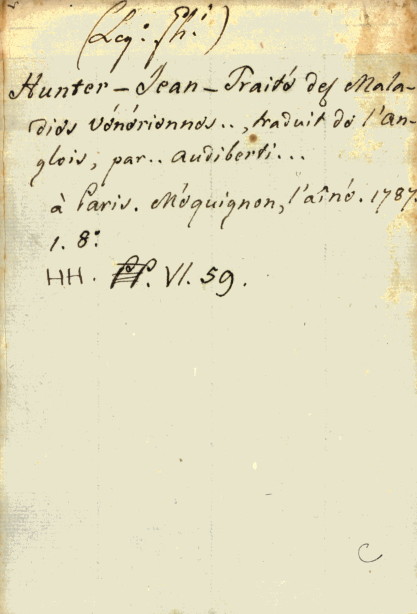 (Leg: Gh:)
Hunter - Jean - Traité des Mala-
dies vénériennes.., traduit de l'An-
glois, par.. Audiberti...
à Paris. Méquignon, l'aîné. 1787.
1. 8:
HH. VI. 59.
C